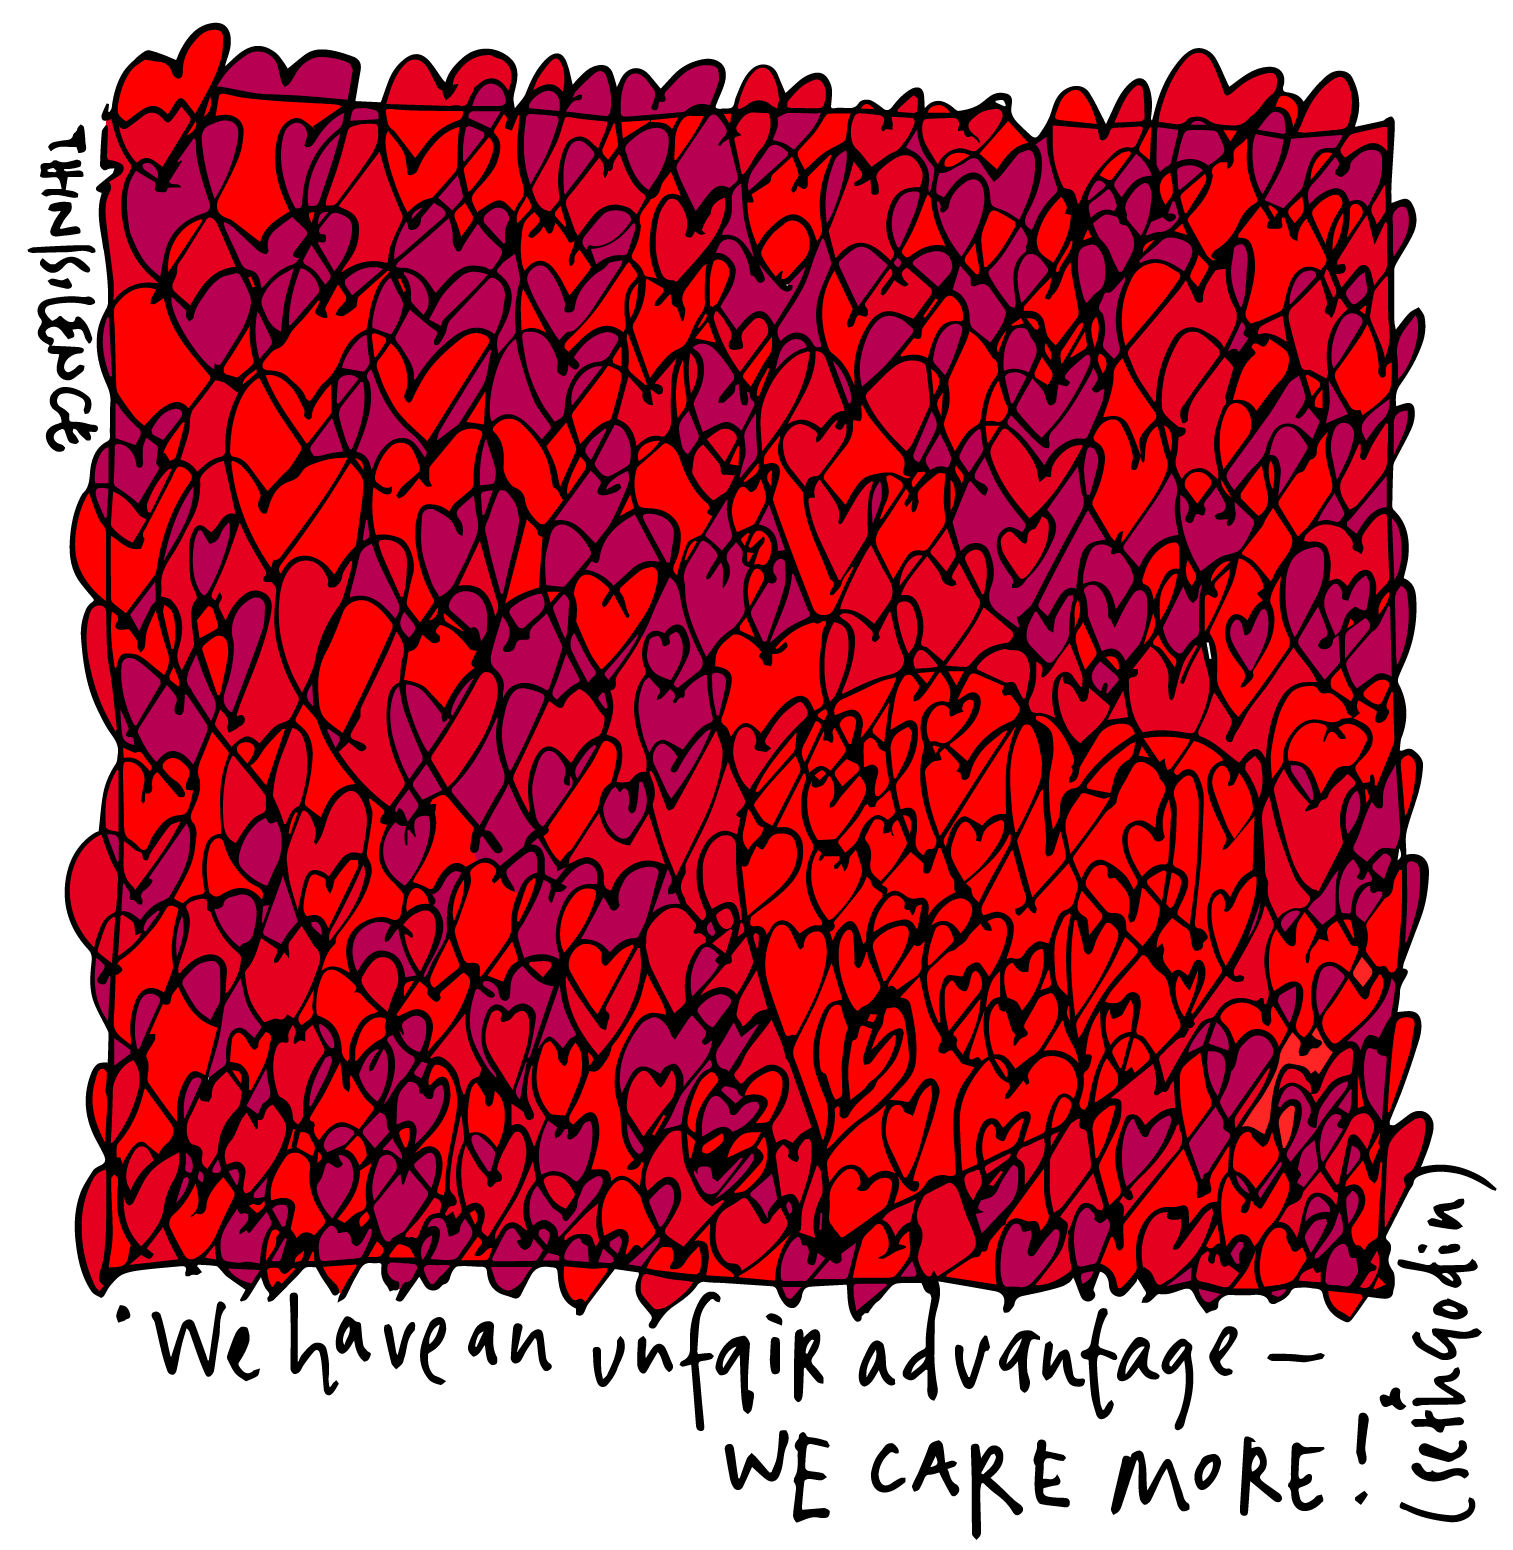 THIN|SILENCE
'We have an unfair advantage —
WE CARE MORE!'
(sethGodin)